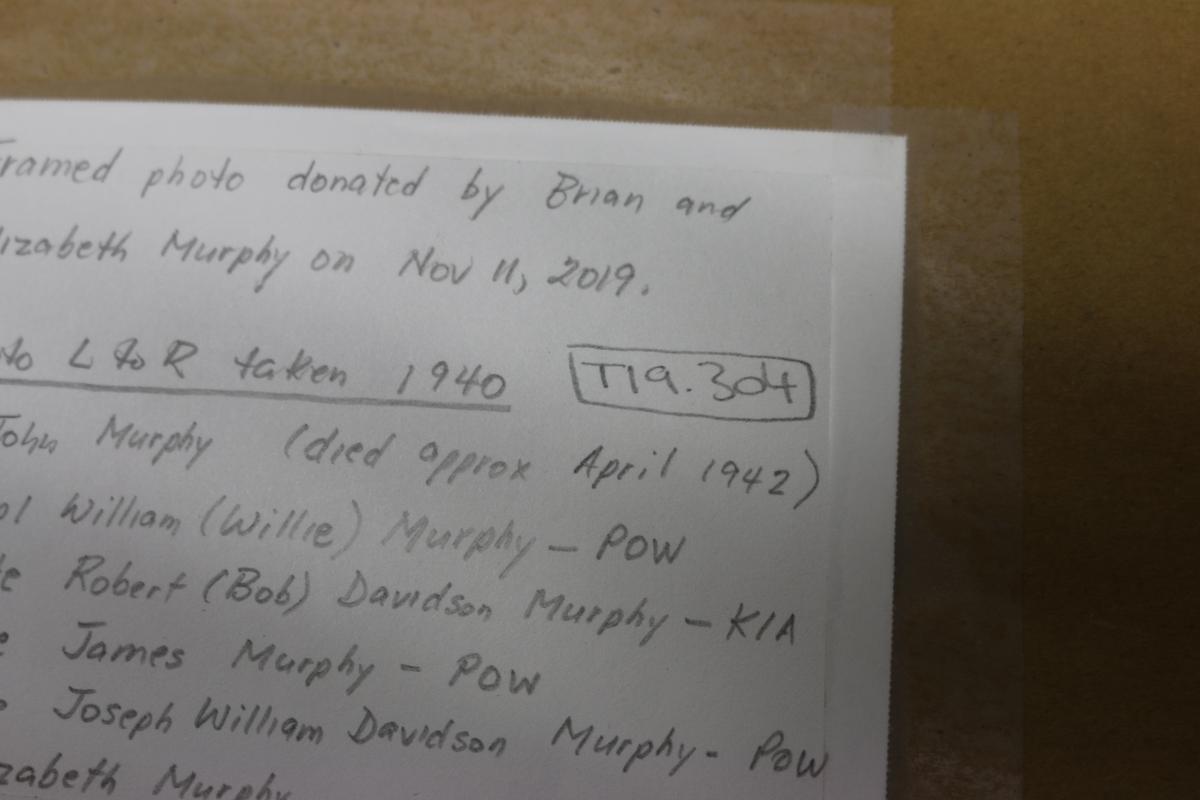 Framed photo donated by Brian and
lizabeth Murphy on Nov 11, 2019.
to L to R taken 1940 T19.304
John Murphy (died approx April 1942)
pl William (Willie) Murphy - POW
te Robert (Bob) Davidson Murphy - KIA
e James Murphy - POW
Joseph William Davidson Murphy - POW
zabeth Murphy